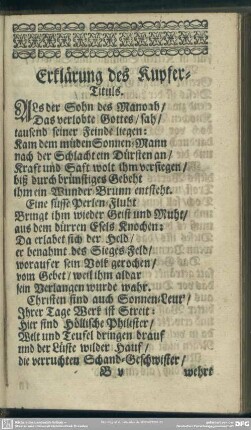 Erklärung des Kupfer-
Tituls.
ALs der Sohn des Manoah/
Das verlobte Gottes/ sah/
tausend seiner Feinde liegen:
Kam dem müden Sonnen-Mann
nach der Schlacht ein Dürsten an/
Krafft und Safft wolt ihm versiegen/
biß durch brünstiges Gebeht
ihm ein Wunder-Brunn entsteht.
Eine süsse Perlen-Fluht
Bringt ihm wieder Geist und Muht/
aus dem dürren Esels Knochen:
Da erlabet sich der Held/
er benahmt des Sieges-Feld/
worauf er sein Volk gerochen/
vom Gebet/ weil ihm aldar
sein Verlangen wurde wahr.
Christen sind auch Sonnen-Leut/
Ihrer Tage Werk ist Streit:
Hier sind Höllische Philister/
Welt und Teufel dringen drauf
und der Lüste wilder Hauf/
die verruchten Schand-Geschwister/
B v wehrt